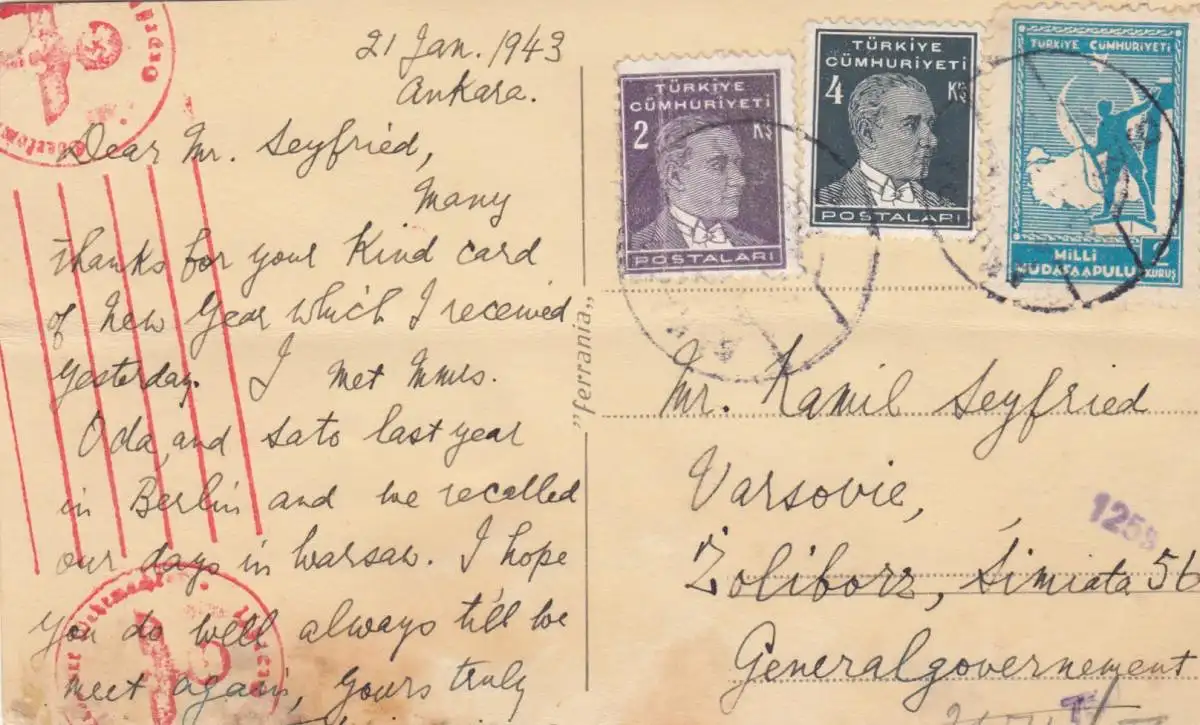 21 Jan. 1943
Ankara.
Dear Mr. Seyfried,
Many
thanks for your kind card
of New Year which I received
yesterday. I met Mmes.
Oda, and Sato last year
in Berlin and we recalled
our days in Warsaw. I hope
you do well always till we
meet again, yours truly
TÜRKİYE
CÜMHURİYETİ
2 Kş
POSTALARI
TÜRKİYE
CÜMHURİYETİ
4 Kş
POSTALARI
TÜRKİYE CÜMHURİYETİ
MİLLİ
MÜDAFAA PULU
2 KURUŞ
"ferrania"
Mr. Kamil Seyfried
Varsovie,
Żoliborz, Śmiata 56
Generalgovernement
125
T